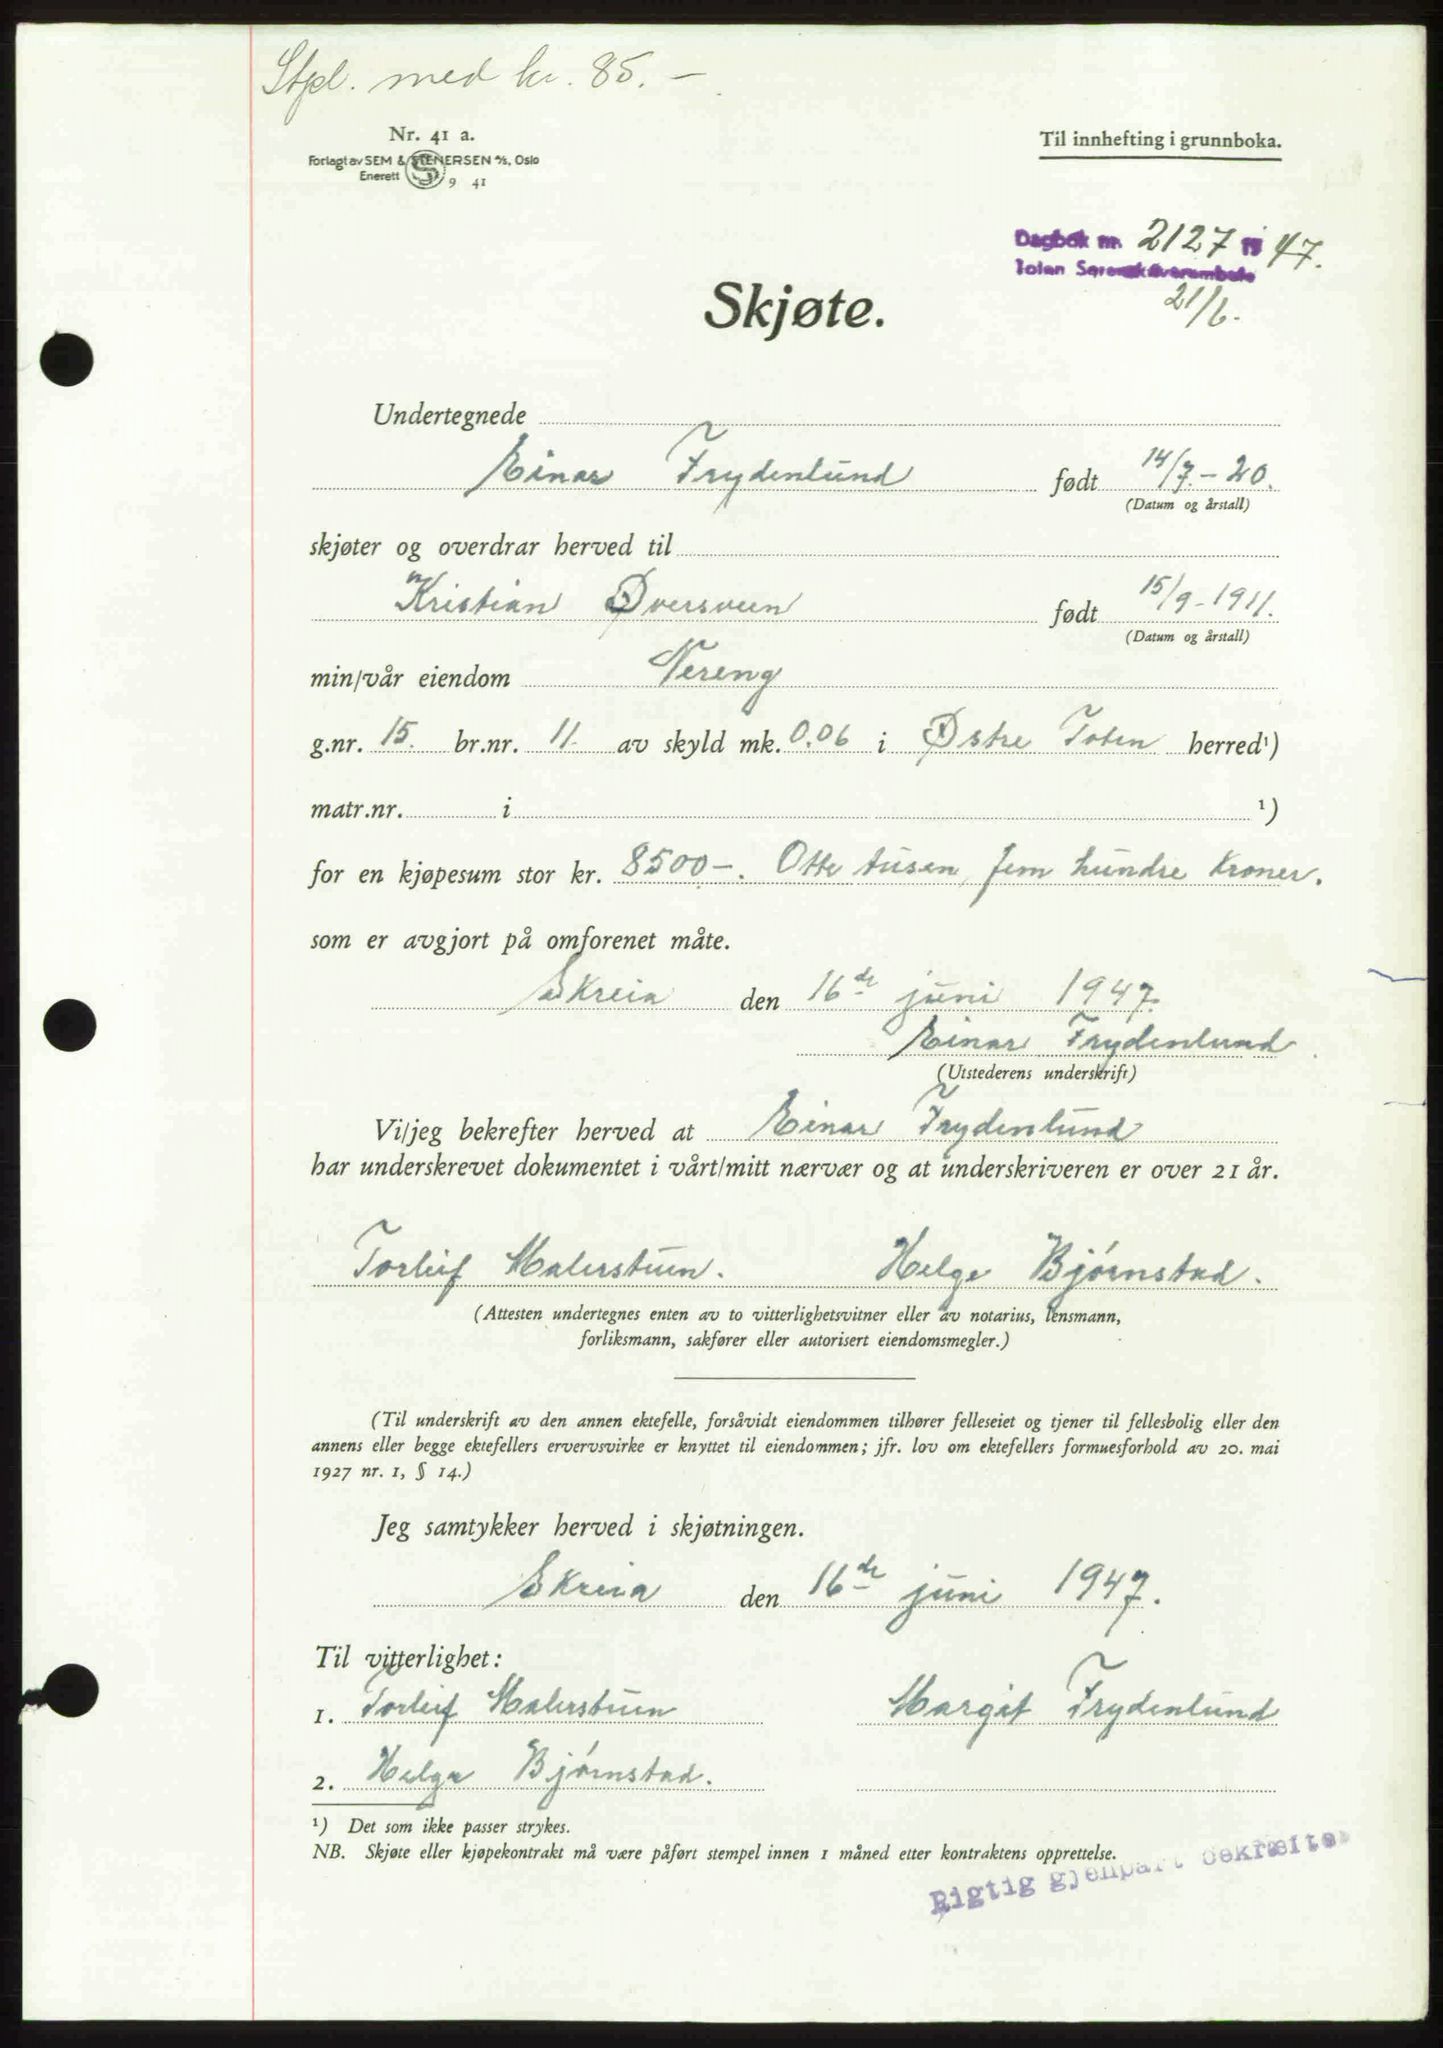 Stpl. med kr. 85.-
Nr. 41 a.
Forlagt av SEM & STENERSEN A/S, Oslo
Enerett S 9 41
Til innhefting i grunnboka.
Dagbok nr. 2127 19 47.
Toten Sorenskriverembete
21/6.
Skjøte.
Undertegnede
Einar Frydenlund født 14/7.-20.
(Datum og årstall)
skjøter og overdrar herved til
Kristian Øversveen født 15/9-1911.
(Datum og årstall)
min/vår eiendom Nereng
g.nr. 15. br.nr. 11. av skyld mk. 0.06 i Østre Toten herred¹)
matr.nr. i ¹)
for en kjøpesum stor kr. 8500-. Otte tusen, fem hundre kroner.
som er avgjort på omforenet måte.
Skreia den 16de juni 1947.
Einar Frydenlund
(Utstederens underskrift)
Vi/jeg bekrefter herved at Einar Frydenlund
har underskrevet dokumentet i vårt/mitt nærvær og at underskriveren er over 21 år.
Torleif Malerstuen. Helge Bjørnstad.
(Attesten undertegnes enten av to vitterlighetsvitner eller av notarius, lensmann,
forliksmann, sakfører eller autorisert eiendomsmegler.)
(Til underskrift av den annen ektefelle, forsåvidt eiendommen tilhører felleseiet og tjener til fellesbolig eller den
annens eller begge ektefellers ervervsvirke er knyttet til eiendommen; jfr. lov om ektefellers formuesforhold av 20. mai
1927 nr. 1, § 14.)
Jeg samtykker herved i skjøtningen.
Skreia den 16de juni 1947.
Til vitterlighet:
1. Torleif Malerstuen Margit Frydenlund
2. Helge Bjørnstad.
¹) Det som ikke passer strykes.
NB. Skjøte eller kjøpekontrakt må være påført stempel innen 1 måned etter kontraktens opprettelse.
Rigtig gjenpart bekræftes